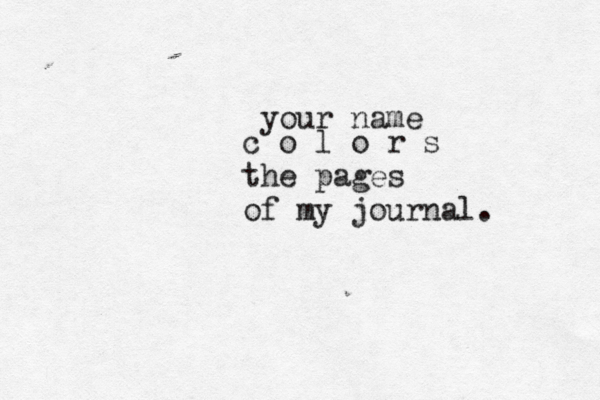 your name
c o l o r s
the pages
of my journal.